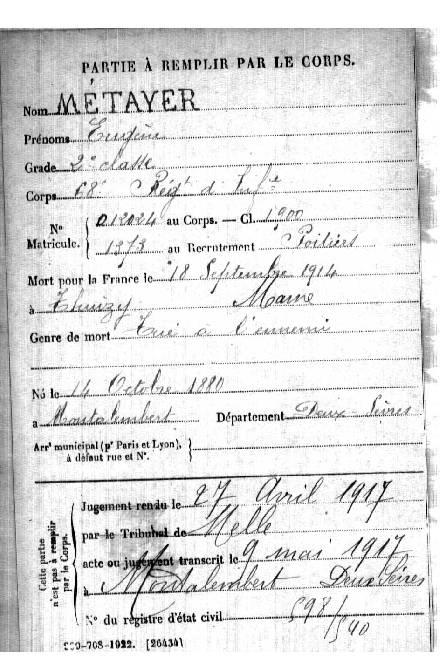 PARTIE À REMPLIR PAR LE CORPS.
Nom MÉTAYER
Prénoms Eugène
Grade 2e classe
Corps 68e Régt d'Infie
N° Matricule. { 012024 au Corps. — Cl. 1900
1373 au Recrutement Poitiers
Mort pour la France le 18 Septembre 1914
à Thuizy Marne
Genre de mort Tué à l'ennemi
Né le 14 Octobre 1880
à Montalembert Département Deux-Sèvres
Arrt municipal (pr Paris et Lyon), à défaut rue et N°. }
Cette partie n'est pas à remplir par le Corps.
Jugement rendu le 27 Avril 1917
par le Tribunal de Melle
acte ou jugement transcrit le 9 mai 1917
à Montalembert Deux Sèvres
N° du registre d'état civil
598/540
-708-1922. [26434]